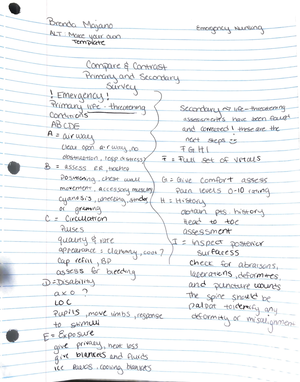 Brenda Majano
Emergency Nursing
ALT: Make your own
Template
Compare & Contrast
Primary and Secondary
Survey
! Emergency!
Primary life-threatening
Conditions
ABCDE
A = airway
clear open airway, no
obstruction, resp distress
B = Assess RR, trachea
Positioning, chest wall
movement, accessory muscles
cyanosis, wheezing, stridor,
or grunting
C = Circulation
Pulses
quality & rate
appearance = clammy, cool?
cap refill, BP
assess for bleeding
D = Disability
axo?
LOC
Pupils, move limbs, response
to stimuli
E = Exposure
give privacy, heat loss
give blankets and fluids
ice packs, cooling blankets
Secondary life-threatening
assessments have been found
and corrected! these are the
next steps
FGHI
F = Full set of vitals
G = Give comfort assess
Pain levels 0-10 rating
H = History
obtain pts history
Head to toe
assessment
I = Inspect posterior
surfaces
check for abrasions,
lacerations, deformities,
and puncture wounds
The spine should be
palpated to identify any
deformity or misalignment